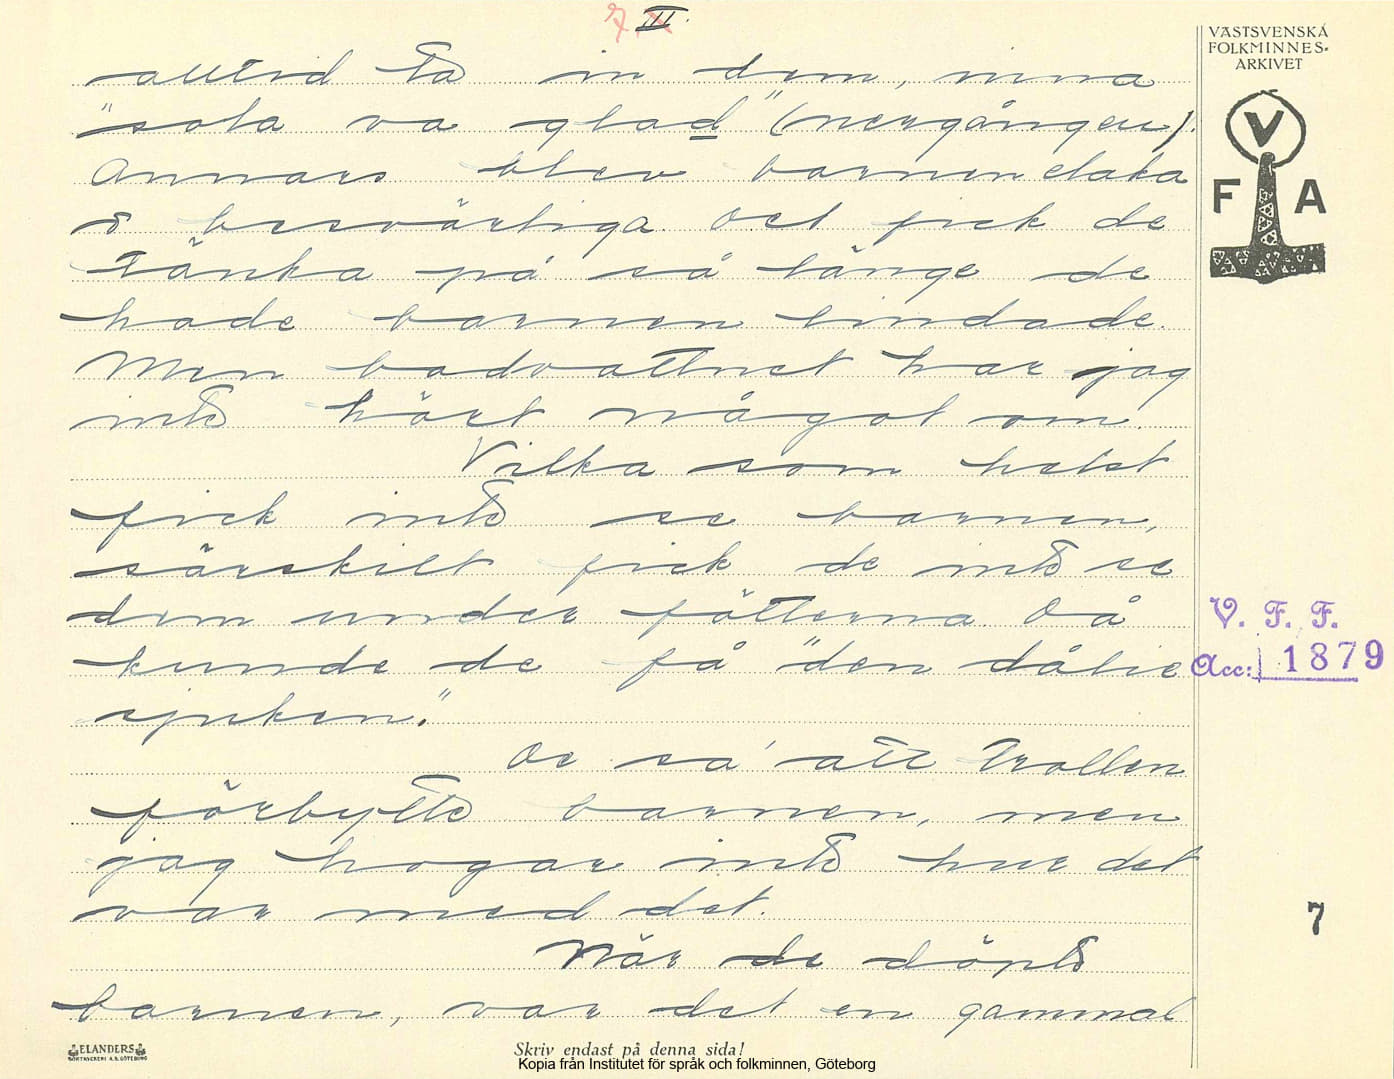 III.
VÄSTSVENSKA
FOLKMINNES-
ARKIVET
V
F A
alltid ta in dem, inna
"sola va glad" (nergången).
Annars blev barnen elaka
o besvärliga. Det fick de
tänka på så länge de
hade barnen lindade.
Men badvattnet har jag
inte hört något om.
Vilka som helst
fick inte se barnen,
särskilt fick de inte se
dem under fötterna. Då
kunde de få "den dålie
sjuken."
Oc så att trollen
förbytte barnen, men
jag hogar inte hur det
var med det.
När de döpte
barnen, var det en gammal
V. F. F.
Acc: 1879
7
ELANDERS
BOKTRYCKERI A.B. GÖTEBORG
Skriv endast på denna sida!
Kopia från Institutet för språk och folkminnen, Göteborg